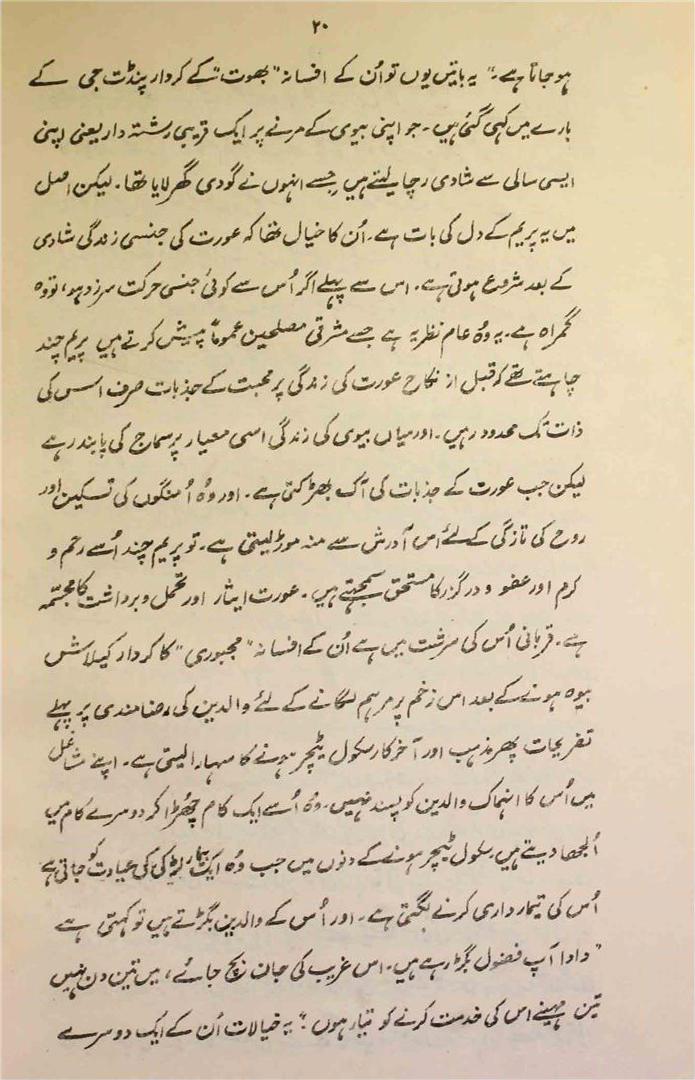 ۲۰
ہو جاتا ہے۔" یہ باتیں یوں تو اُن کے افسانہ "بھوت" کے کردار پنڈت جی کے
بارے میں کہی گئی ہیں۔ جو اپنی بیوی کے مرنے پر ایک قریبی رشتہ دار یعنی اپنی
ایسی سالی سے شادی رچا لیتے ہیں جسے انہوں نے گودی گھر لایا تھا۔ لیکن اصل
میں یہ پریم کے دل کی بات ہے۔ اُن کا خیال تھا کہ عورت کی جنسی زندگی شادی
کے بعد شروع ہوتی ہے۔ اس سے پہلے اگر اُس سے کوئی جنسی حرکت سرزد ہو، تو وہ
گمراہ ہے۔ یہ وہ عام نظریہ ہے جسے مشرقی مصلحین عموماً پیش کرتے ہیں پریم چند
چاہتے تھے کہ قبل از نکاح عورت کی زندگی پر محبت کے جذبات صرف اس کی
ذات تک محدود رہیں۔ اور میاں بیوی کی زندگی اسی معیار پر سماج کی پابند رہے
لیکن جب عورت کے جذبات کی آگ بھڑکتی ہے۔ اور وہ اُمنگوں کی تسکین اور
روح کی تازگی کے لئے اس آدرش سے منہ موڑ لیتی ہے۔ تو پریم چند اُسے رحم و
کرم اور عفو و درگزر کا مستحق سمجھتے ہیں۔ عورت ایثار اور تحمل و برداشت کا مجسمہ
ہے۔ قربانی اُس کی سرشت میں ہے اُن کے افسانہ "مجبوری" کا کردار کیلاش
بیوہ ہونے کے بعد اس زخم پر مرہم لگانے کے لئے والدین کی رضامندی پر پہلے
تفریحات پھر مذہب اور آخرکار سکول ٹیچر ہونے کا سہارا لیتی ہے۔ اپنے مشاغل
میں اُس کا انہماک والدین کو پسند نہیں۔ وہ اُسے ایک کام چھڑا کر دوسرے کام میں
اُلجھا دیتے ہیں سکول ٹیچر ہونے کے دنوں میں جب وہ ایک بیمار لڑکی کی عیادت کو جاتی ہے
اُس کی تیمارداری کرنے لگتی ہے۔ اور اُس کے والدین بگڑتے ہیں تو کہتی ہے
"دادا آپ فضول بگڑ رہے ہیں۔ اس غریب کی جان بچ جائے، میں تین دن نہیں
تین مہینے اس کی خدمت کرنے کو تیار ہوں۔" یہ خیالات اُن کے ایک دوسرے